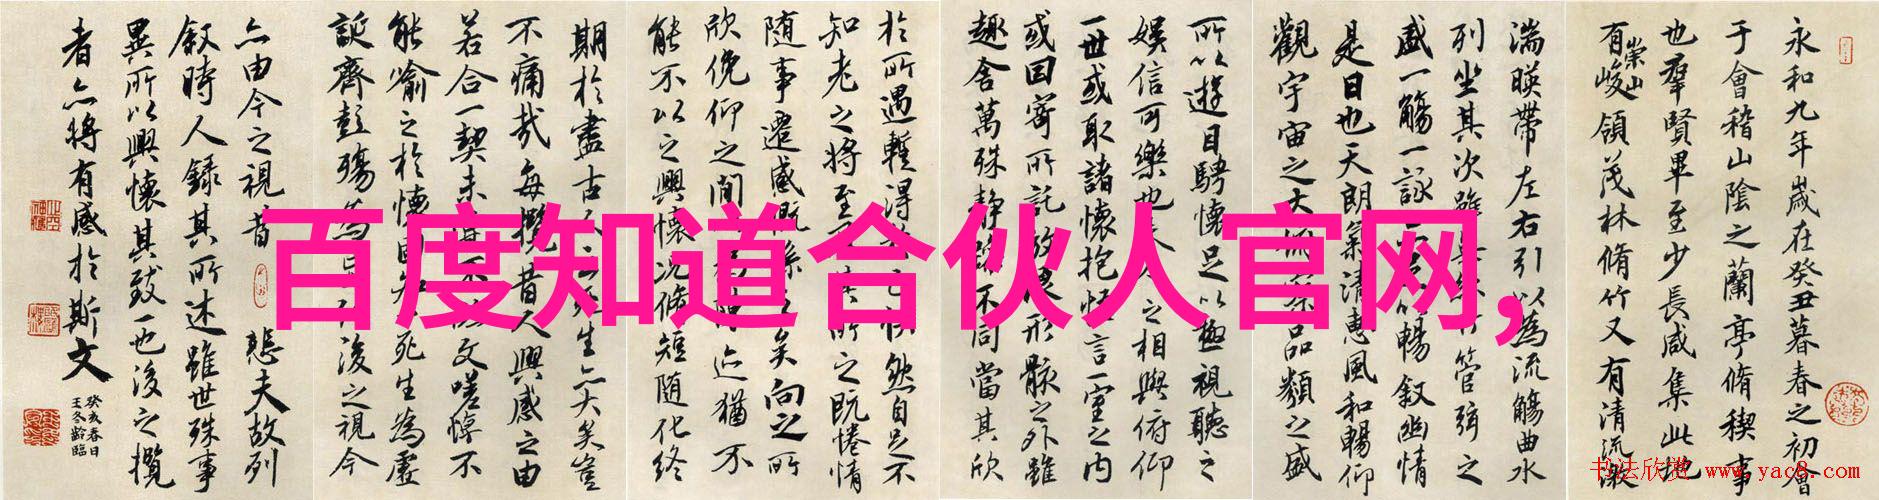 永和九年歲在癸丑暮春之初會
于會稽山陰之蘭亭脩稧事
也羣賢畢至少長咸集此地
有崇山峻領茂林脩竹又有清流激
湍暎帶左右引以為流觴曲水
列坐其次雖管弦之
盛一觴一詠暢敘幽情
是日也天朗氣清惠風和暢仰
觀宇宙之大品類之盛
所以遊目騁懷足以極視聽之
娛信可樂也人之相與俯仰
一世或取諸懷抱悟言一室之内
或因寄所託放浪形骸之外雖
趣舍萬殊静躁不同當其欣
於所遇暫得怏然自足不
知老之將至所之既惓情
随事遷感慨係之矣向之所
欣俛仰之間陳迹猶不
能不以之興懷况脩短随化終
期於盡古人死生亦大矣豈
不痛哉每攬昔人興感之由
若合一契未不文嗟悼不
能喻之於懷固知死生為虛
誕齊彭殤為後之視今
亦由今之視昔悲夫故列
敘時人錄其所述雖世殊事
異所以興懷其致一也後之攬
者亦將有感於斯文
癸亥春日
王冬齡臨
百度知道合伙人官网,
书法欣赏 www.yac8.com